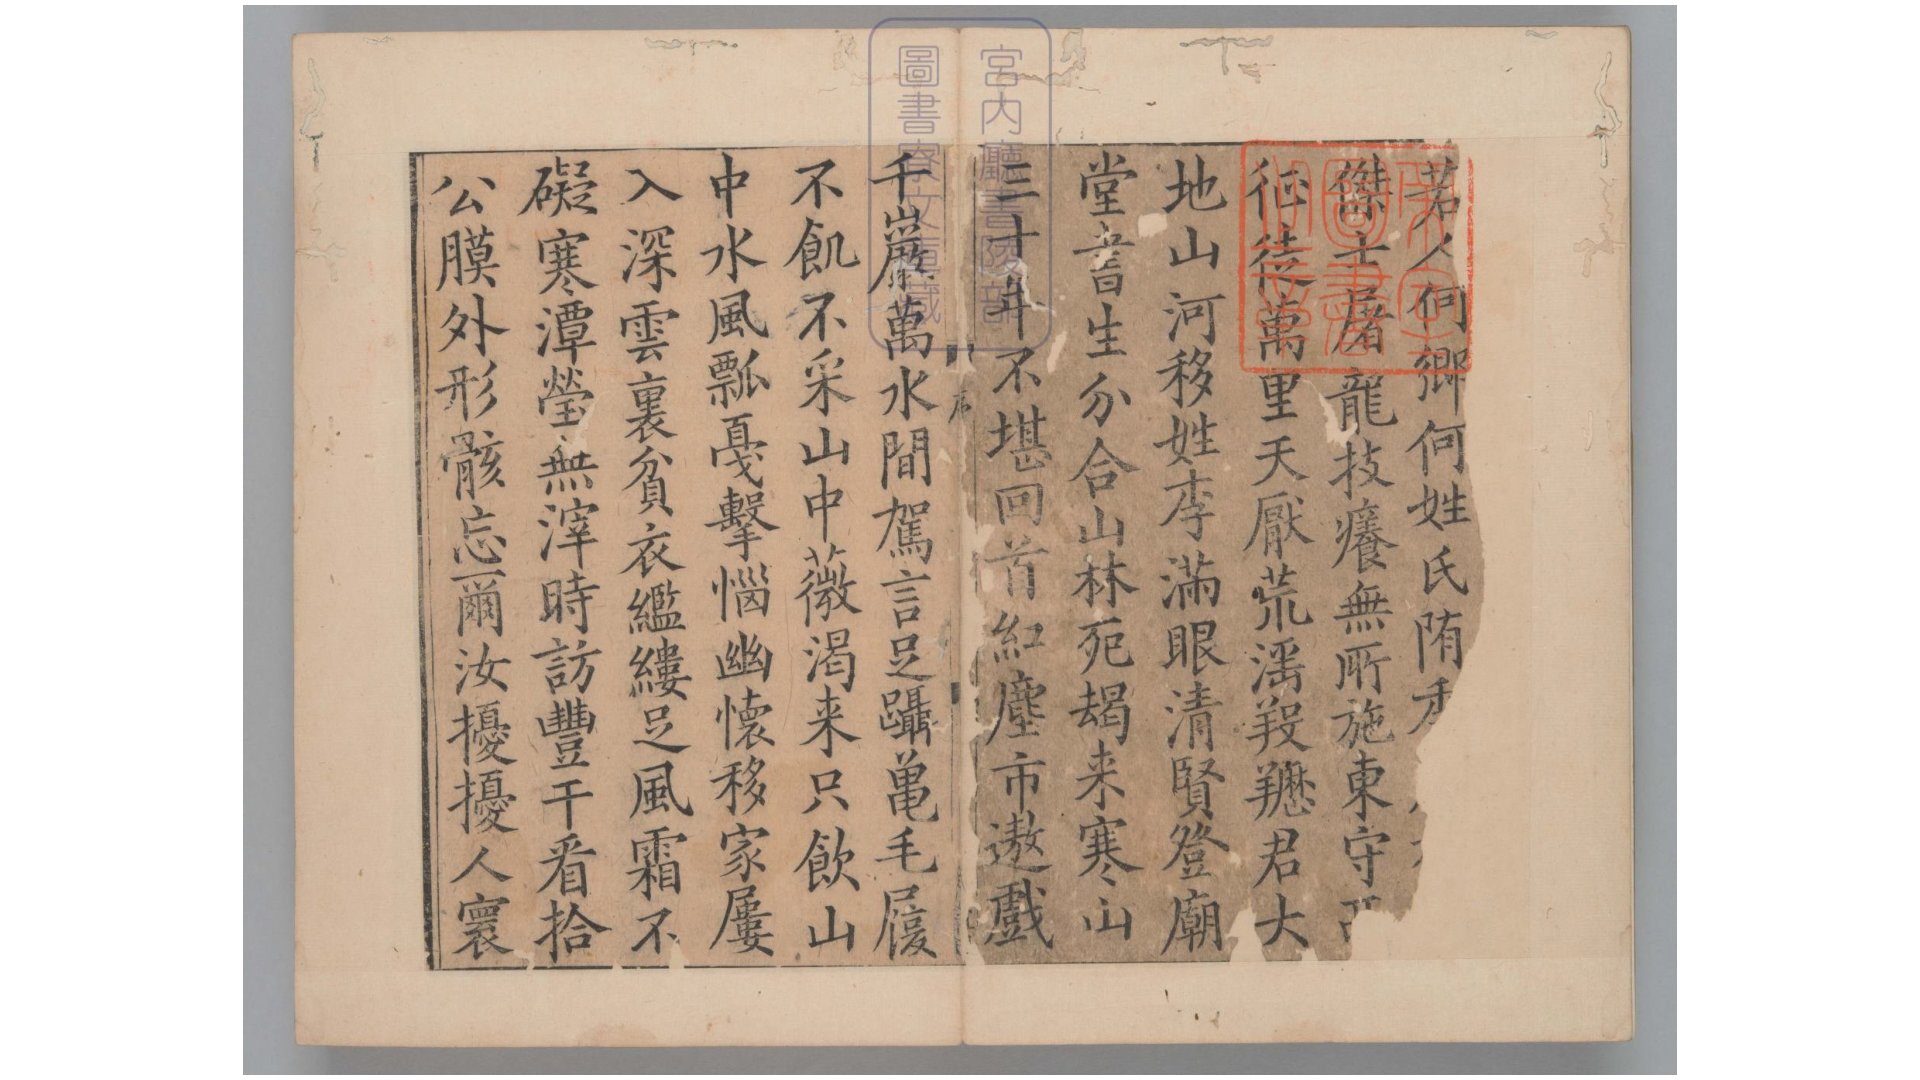 若人何鄉何姓氏隋
傑士屠龍技癢無所施東守西
征徒萬里天厭荒淫羖𦍕君大
地山河移姓李滿眼清賢登廟
堂書生分合山林死朅来寒山
三十年不堪回首紅塵市遨戲
千巖萬水間駕言足躡龜毛屨
不飢不采山中薇渴来只飲山
中水風瓢戛擊惱幽懷移家屢
入深雲裏貧衣繿縷足風霜不
礙寒潭瑩無滓時訪豐干看拾
公膜外形骸忘爾汝擾擾人寰
序
宮内廳書陵部
圖書寮文庫藏
圖書